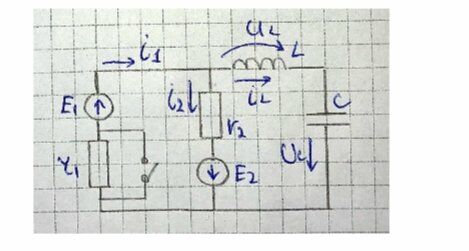 U_L
i_1 L
E_1 i_2 i_L C
r_2
r_1 E_2 U_C